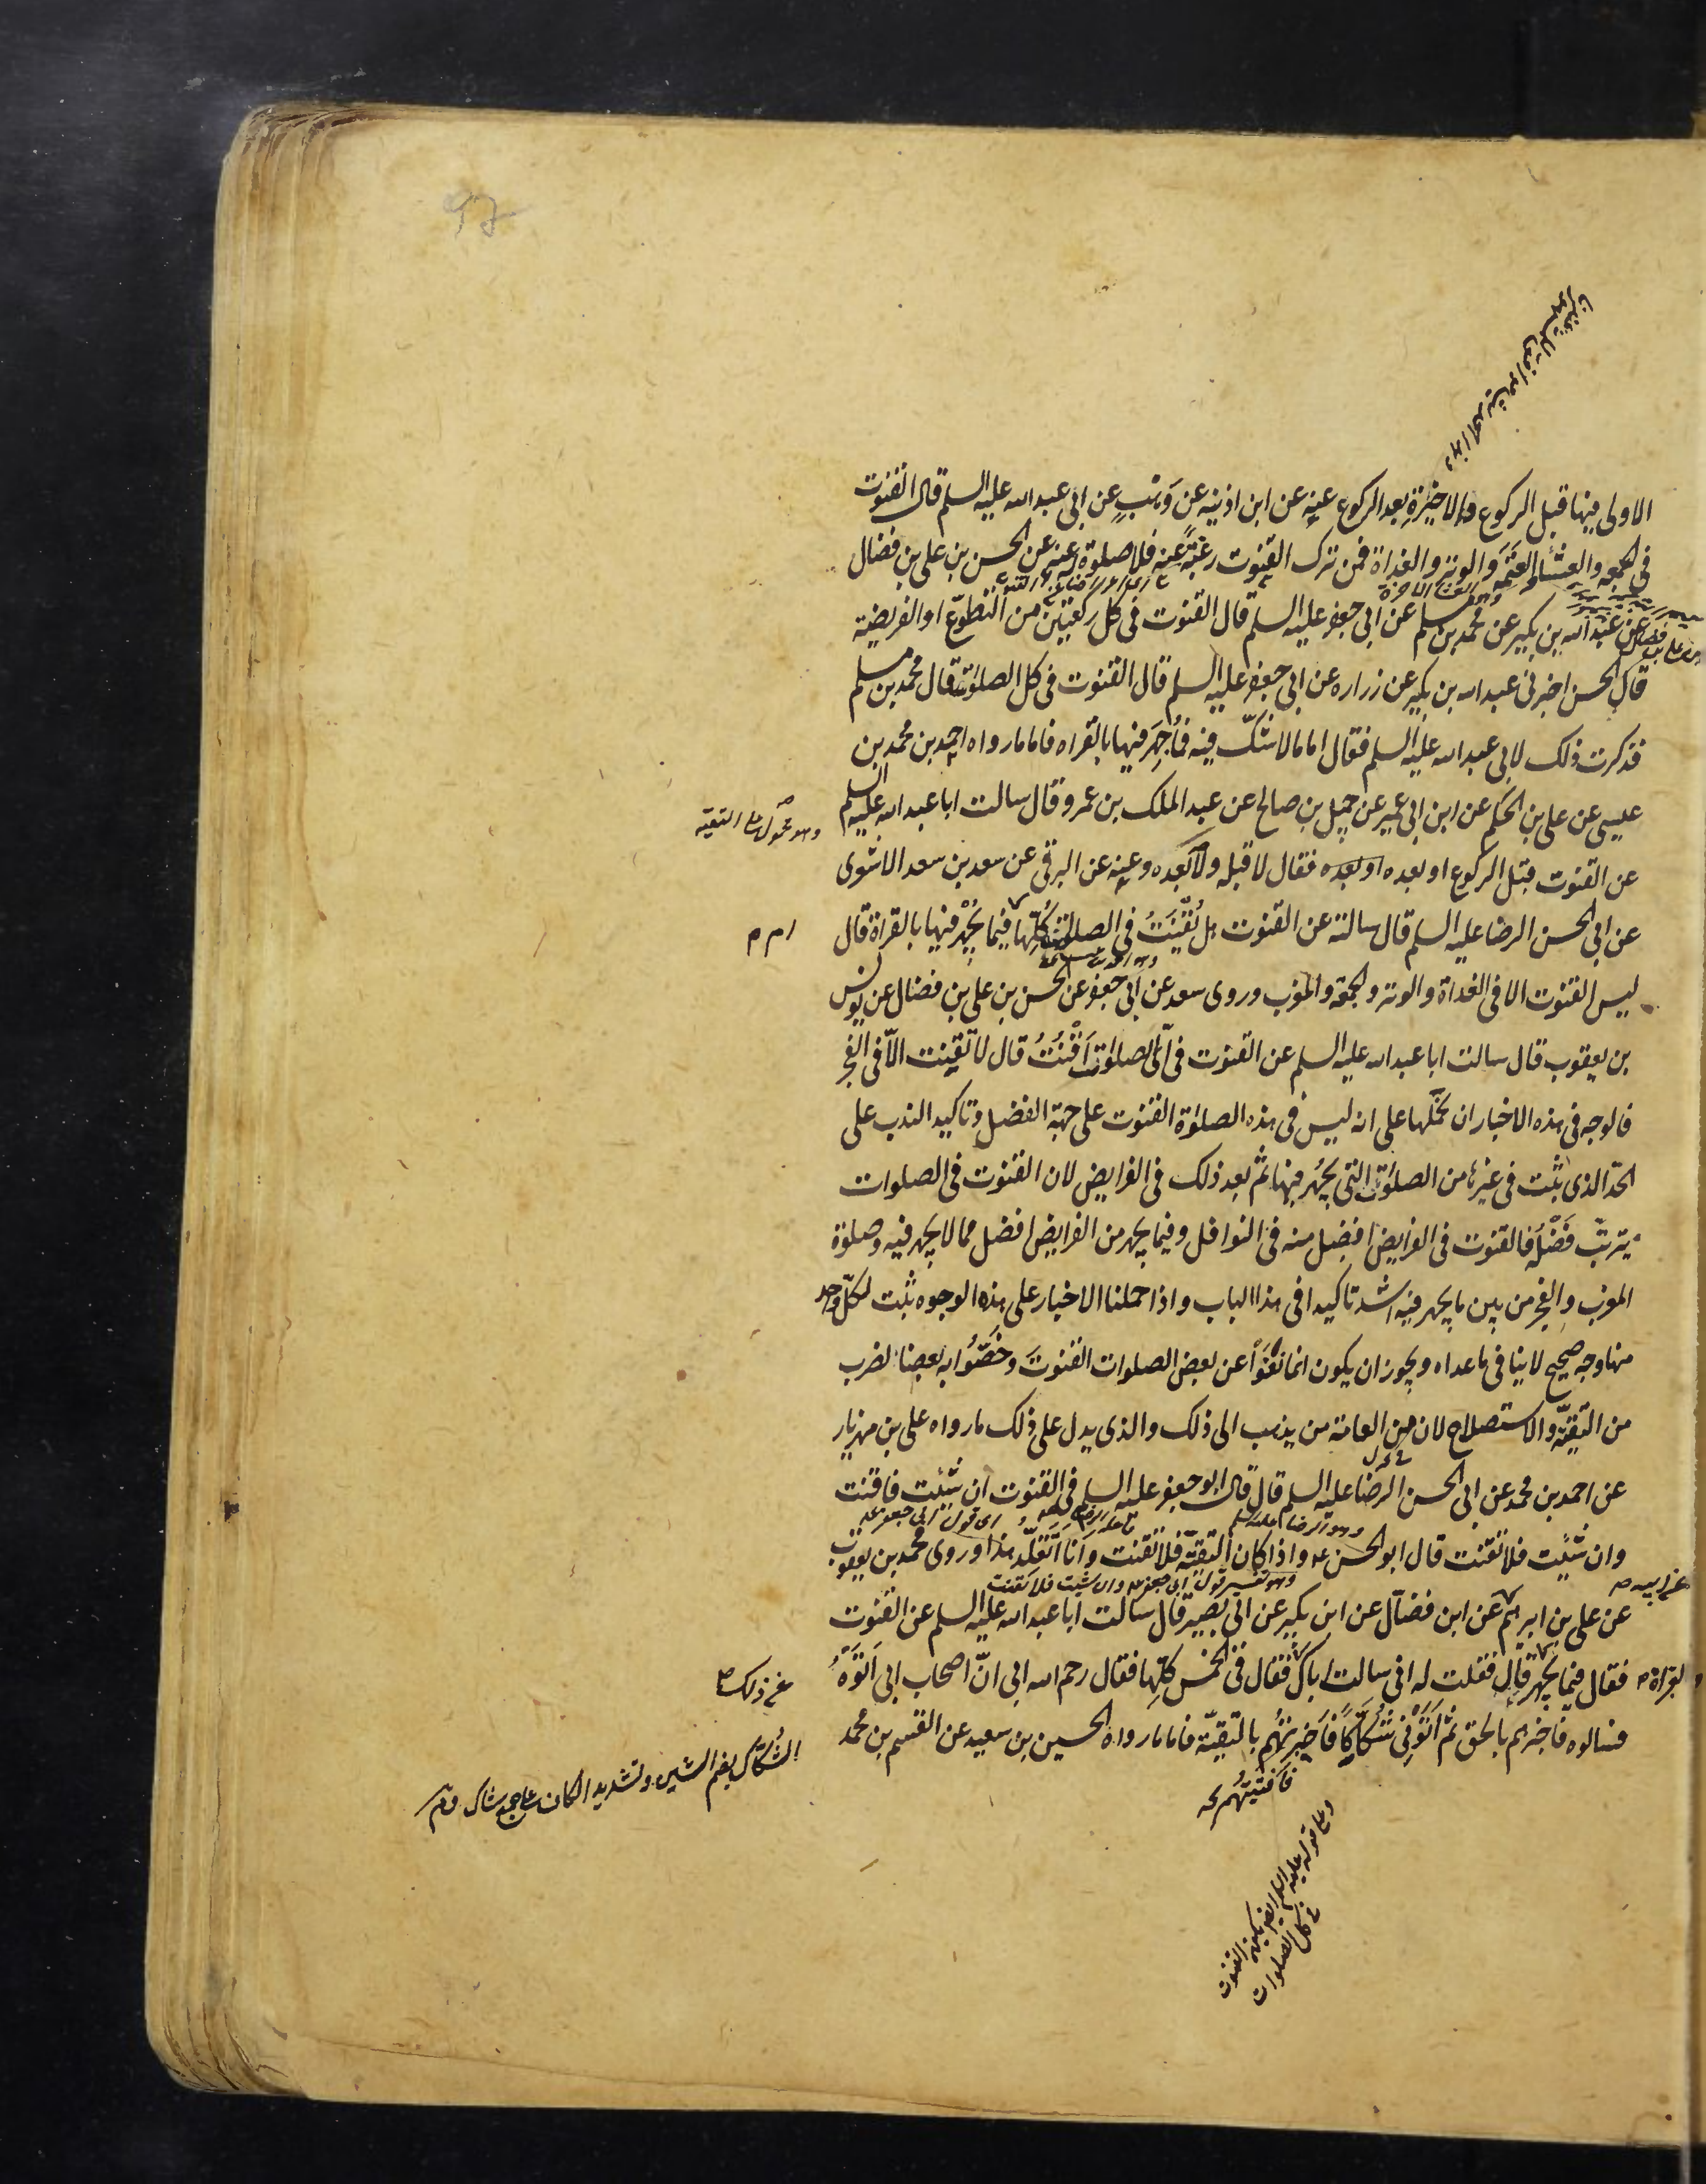 97
الاولى فيها قبل الركوع والاخيرة بعد الركوع عنه عن ابن اذينه عن وَهْبٍ عن ابى عبد الله عليه السلم قال القنوت
فى الجمعه والعشاء والعتمه والوتر والغداة فمن ترك القنوت رغبةً عنه فلا صلوة له عنه عن الحسن بن على بن فضال
عن عبد الله بن بكير عن محمد بن مسلم عن ابى جعفر عليه السلم قال القنوت فى كل ركعتين من التطوّع او الفريضه
قال الحسن اخبرنى عبد الله بن بكير عن زراره عن ابى جعفر عليه السلم قال القنوت فى كل الصلوات قال محمد بن مسلم
فذكرت ذلك لابى عبد الله عليه السلم فقال اما ما لا شكّ فيه فما جُهِرَ فيها بالقراه فاما ما رواه احمد بن محمد بن
عيسى عن على بن الحكم عن ابن ابى عمير عن جميل بن صالح عن عبد الملك بن عمرو قال سالت ابا عبد الله عليه السلم
وهو محمول على التقيّه
عن القنوت قبل الركوع او بعده او بعده فقال لا قبله ولا بعده وعنه عن البرقى عن سعد بن سعد الاشعرى
عن ابى الحسن الرضا عليه السلم قال سالته عن القنوت هل نُقنَتُ فى الصلوات كلّها فيما يُجهر فيها بالقراة قال
ليس القنوت الا فى الغداة والوتر والجمعة والمغرب وروى سعد عن ابى جعفر عن الحسن بن على بن فضال عن يونس
بن يعقوب قال سالت ابا عبد الله عليه السلم عن القنوت فى اىّ الصلوات اَقْنُتُ قال لا تقنت الّا فى الفجر
فالوجه فى هذه الاخبار ان نحملها على انه ليس فى هذه الصلوٰة القنوت على جهة الفضل وتاكيد الندب على
الحدّ الذى ثبت فى غيرها من الصلوٰت التى يجهر فيها ثم بعد ذلك فى الفرايض لان القنوت فى الصلوات
يترتب فَضْلُه فالقنوت فى الفرايض افضل منه فى النوافل وفيما يجهر من الفرايض افضل مما لا يجهر فيه وصلوٰة
المغرب والفجر من بين ما يجهر فيه اشد تاكيدا فى هذا الباب واذا حملنا الاخبار على هذه الوجوه ثبت لكلّ واحد
منها وجه صحيح لا ينافى ما عداه ويجوز ان يكون انما نَفَوْا عن بعض الصلوات القنوتَ وخَصُّوا به بعضا لضرب
من التَقيّة والاستصلاح لان من العامة من يذهب الى ذلك والذى يدل على ذلك ما رواه على بن مهزيار
عن احمد بن محمد عن ابى الحسن الرضا عليه السلم قال قال ابو جعفر عليه السلم فى القنوت ان شئت فاقنت
وان شئت فلا تقنت قال ابو الحسن ع واذا كان التقيّة فلا تقنت وانا اَتقلّد هذا وروى محمد بن يعقوب
وهو تفسير قول ابى جعفر ع وان شئت فلا تقنت
عن ابيه
عن على بن ابرهيم عن ابن فضّال عن ابن بكير عن ابى بصير قال سالت ابا عبد الله عليه السلم عن القنوت
بالقراة
فقال فيما يجهر قال فقلت له انى سالت اباك فقال فى الخمس كلّها فقال رحم الله ابى انّ اصحاب ابى اَتَوْهُ
عن ذلك
فسالوه فاخبرهم بالحق ثم اَتَوْنى شُكّاكًا فاَخبرتُهم بالتقيّة فاما ما رواه الحسين بن سعيد عن القسم بن محمد
الشُكّاك بضم الشين وتشديد الكاف
فأفتيتُهم
وعلى قوله عليه السلم
فى كل الصلوات